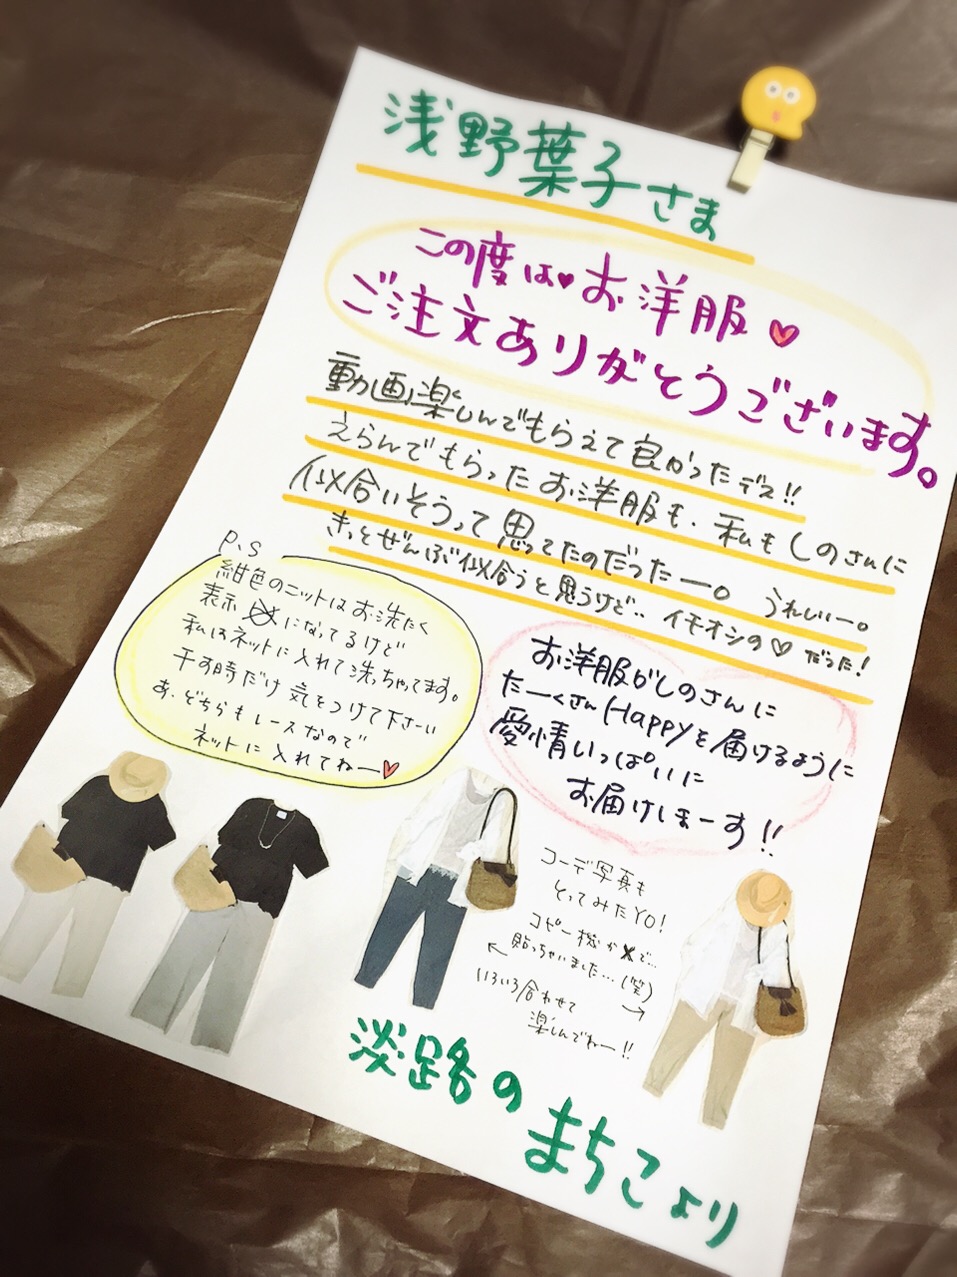 浅野葉子さま
この度は♥お洋服♡
ご注文ありがとうございます。
動画楽しんでもらえて良かったデス!!
えらんでもらったお洋服も、私もしのさんに
似合いそうって思ってたのだったー。うれしいー。
きっとぜんぶ似合うと思うけど… イチオシの♡だった!
P.S
紺色のニットはお洗たく
表示 になってるけど
私はネットに入れて洗っちゃてます。
干す時だけ気をつけて下さーい
あ、どちらもレースなので
ネットに入れてねー♡
お洋服がしのさんに
たーくさんHappyを届けるように
愛情いっぱいに
お届けしまーす!!
コーデ写真も
とってみたYO!
コピー機が で…
貼っちゃいました…(笑)
← いろいろ合わせて →
楽しんでねー!!
淡路の
まちこより